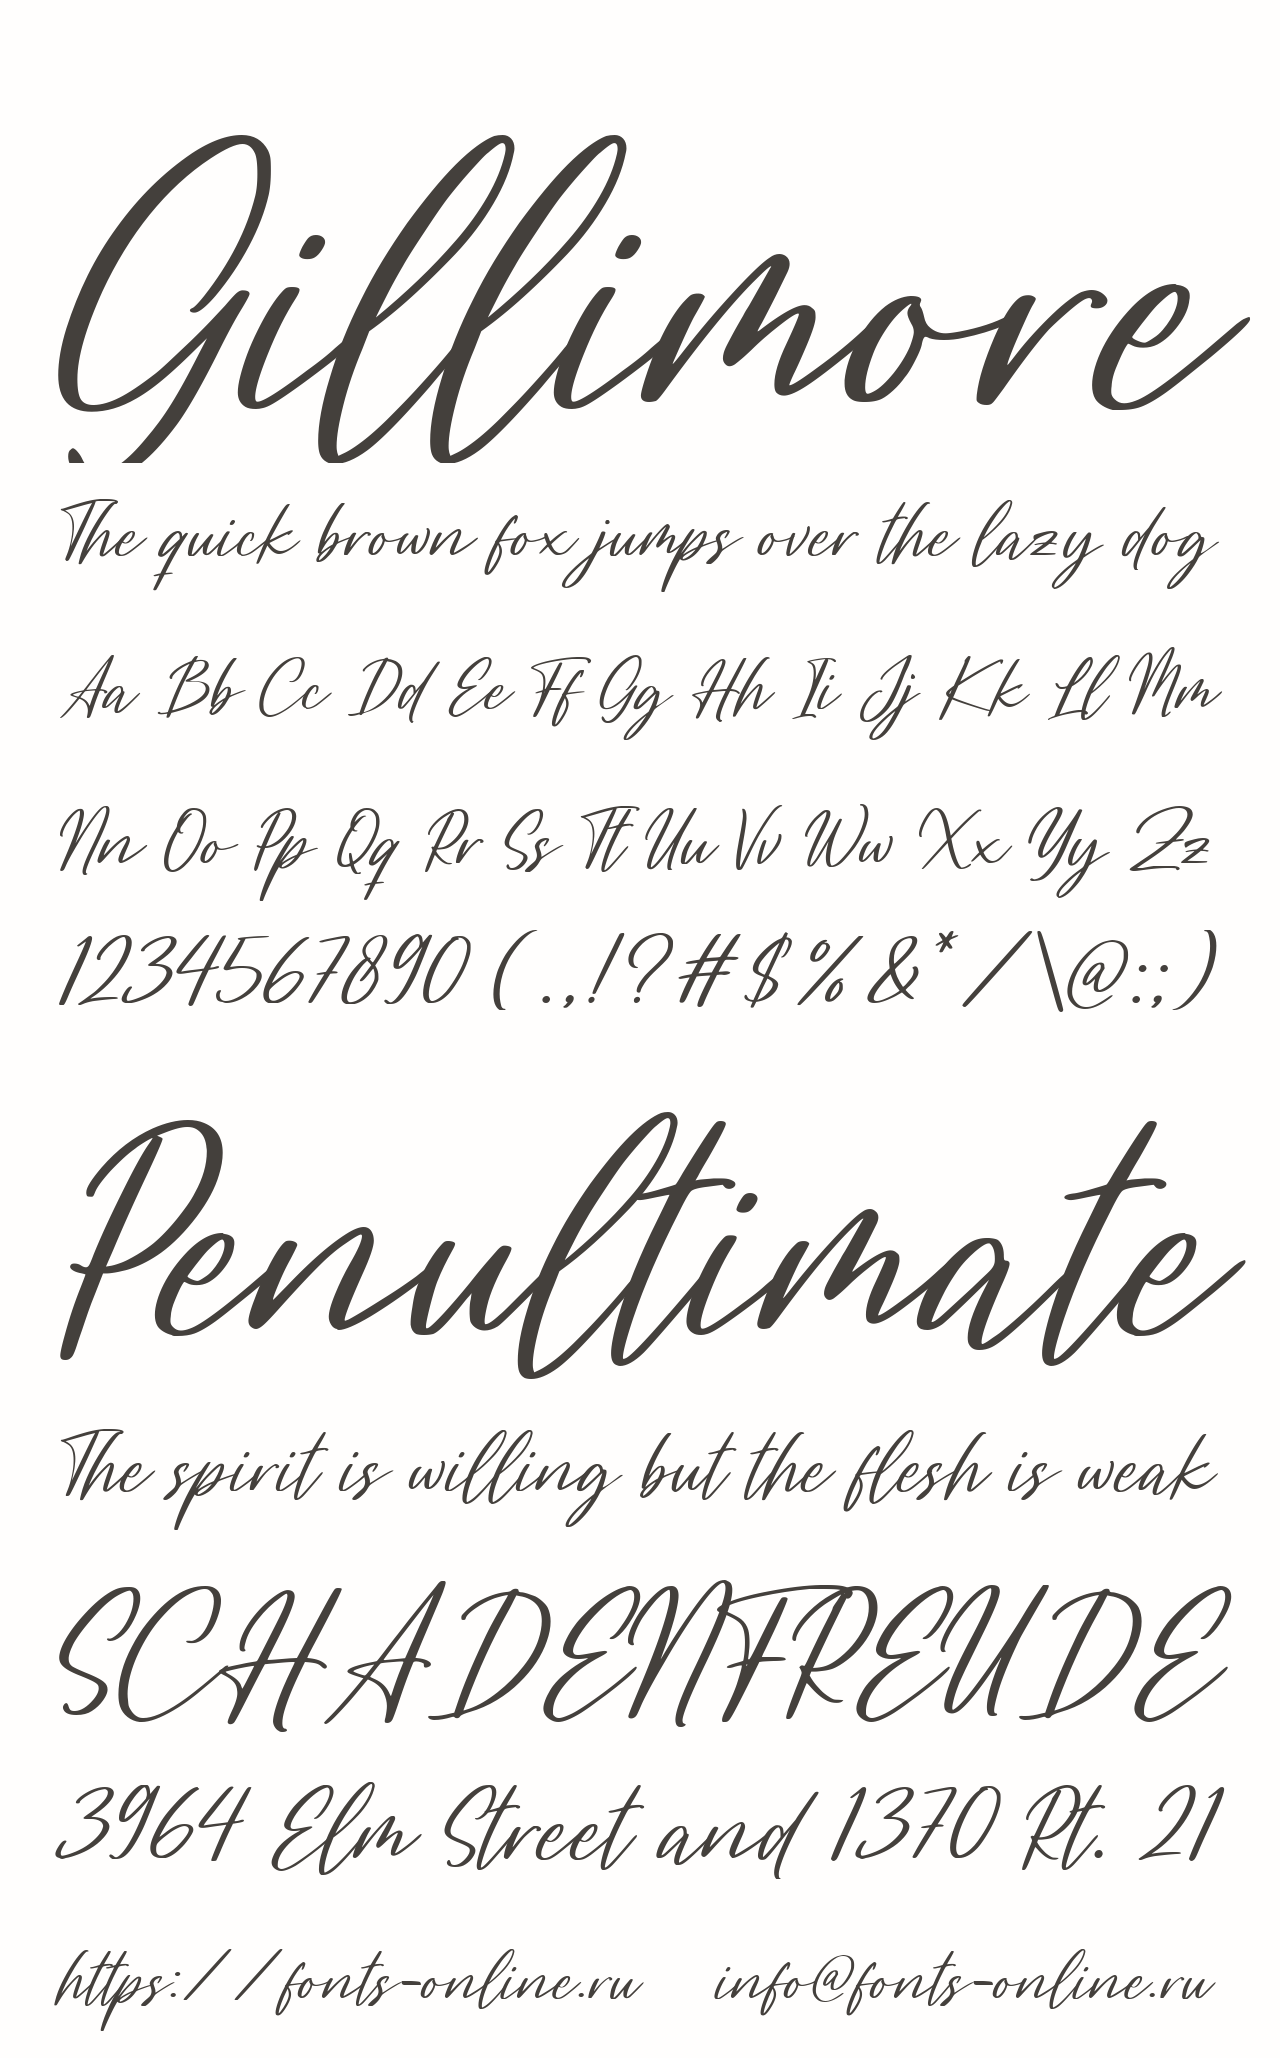 Gillimore
The quick brown fox jumps over the lazy dog
Aa Bb Cc Dd Ee Ff Gg Hh Ii Jj Kk Ll Mm
Nn Oo Pp Qq Rr Ss Tt Uu Vv Ww Xx Yy Zz
1234567890 ( .,!?#$%&*/\@:;)
Penultimate
The spirit is willing but the flesh is weak
SCHADENFREUDE
3964 Elm Street and 1370 Rt. 21
https://fonts-online.ru info@fonts-online.ru